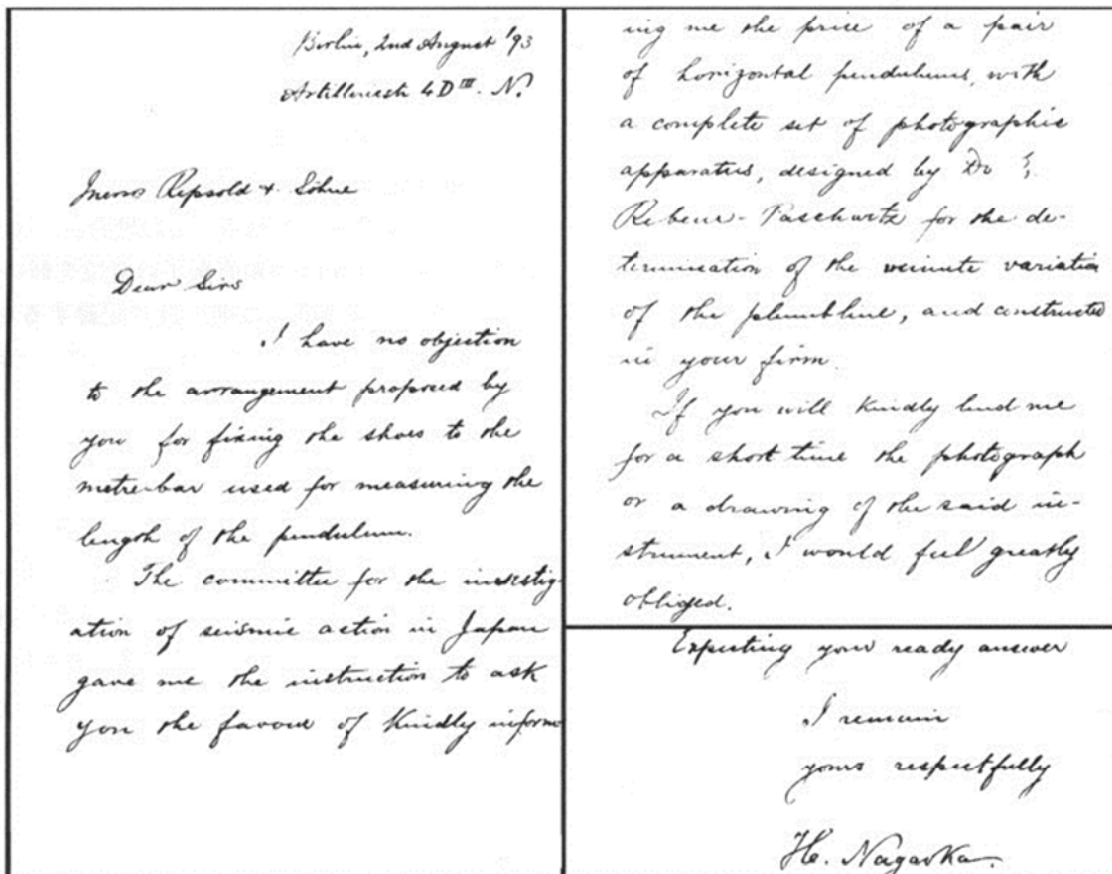 Berlin, 2nd August '93
Artilleriestr 4 D III. N.
Messrs Repsold & Söhne
Dear Sirs
I have no objection
to the arrangement proposed by
you for fixing the shoes to the
metre-bar used for measuring the
length of the pendulum.
The committee for the investig-
ation of seismic action in Japan
gave me the instruction to ask
you the favour of kindly inform
ing me the price of a pair
of horizontal pendulums, with
a complete set of photographic
apparatus, designed by Dr
Rebeur-Paschwitz for the de-
termination of the minute variation
of the plumbline, and constructed
in your firm.
If you will kindly lend me
for a short time the photograph
or a drawing of the said in-
strument, I would feel greatly
obliged.
Expecting your ready answer
I remain
yours respectfully
H. Nagaoka